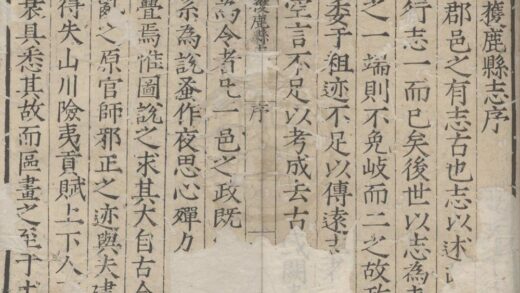 獲鹿縣志序
郡邑之有志古也志以述
行志一而已矣後世以志為
之一端則不免岐而二之故
委于粗迹不足以傳遠
空言不足以考成去古
序
為今者 一邑之政既
系為說蚤作夜思心殫力
焉惟圖說之求其大自古
之原官師邪正之迹與夫建
得失山川險夷貢賦上下人
衰具悉其故而區畫之至于